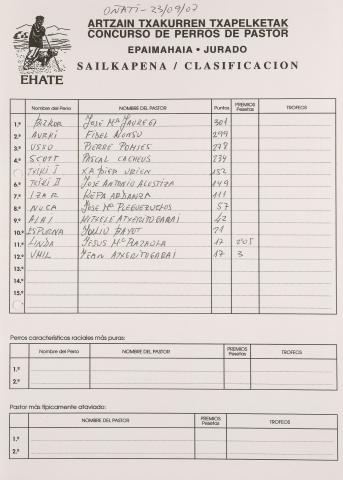 OÑATI-23/09/07
ARTZAIN TXAKURREN TXAPELKETAK
CONCURSO DE PERROS DE PASTOR
EPAIMAHAIA • JURADO
SAILKAPENA / CLASIFICACION
EHATE
Nombre del Perro NOMBRE DEL PASTOR Puntos PREMIOS Pesetas TROFEOS
1.º BIZKOR JOSE Mª JAUREGI 301
2.º AURKI FIDEL ALONSO 299
3.º USKO PIERRE POMIES
4.º SCOTT PASCAL CACHEUS 234
TXIKI I XABIER URIEN 152
6.º TXIKI II JOSE ANTONIO 149
7.º IZAR KEPA 111
8.º NUCA JOSE Mª 57
9.º ATXERITOGARAI 42
10.º ESPUNNA JULIO BAYOT 21
11.º LINDA JESUS Mª 17
12.º JEAN ATXERITOGARAI 17 3
13.º
14.º
15.º
Perros característicos raciales más puros:
Nombre del Perro NOMBRE DEL PASTOR PREMIOS Pesetas TROFEOS
1.º
2.º
Pastor más típicamente ataviado:
NOMBRE DEL PASTOR PREMIOS Pesetas TROFEOS
1.º
2.º